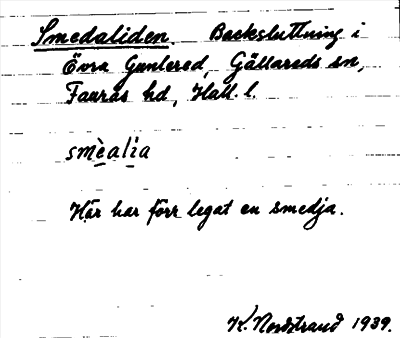 Smedaliden. Backsluttning i
Övra Gunnered, Gällareds sn,
Faurås hd, Hall. l.
smèalìa
Här har förr legat en smedja.
K. Nordstrand 1939.